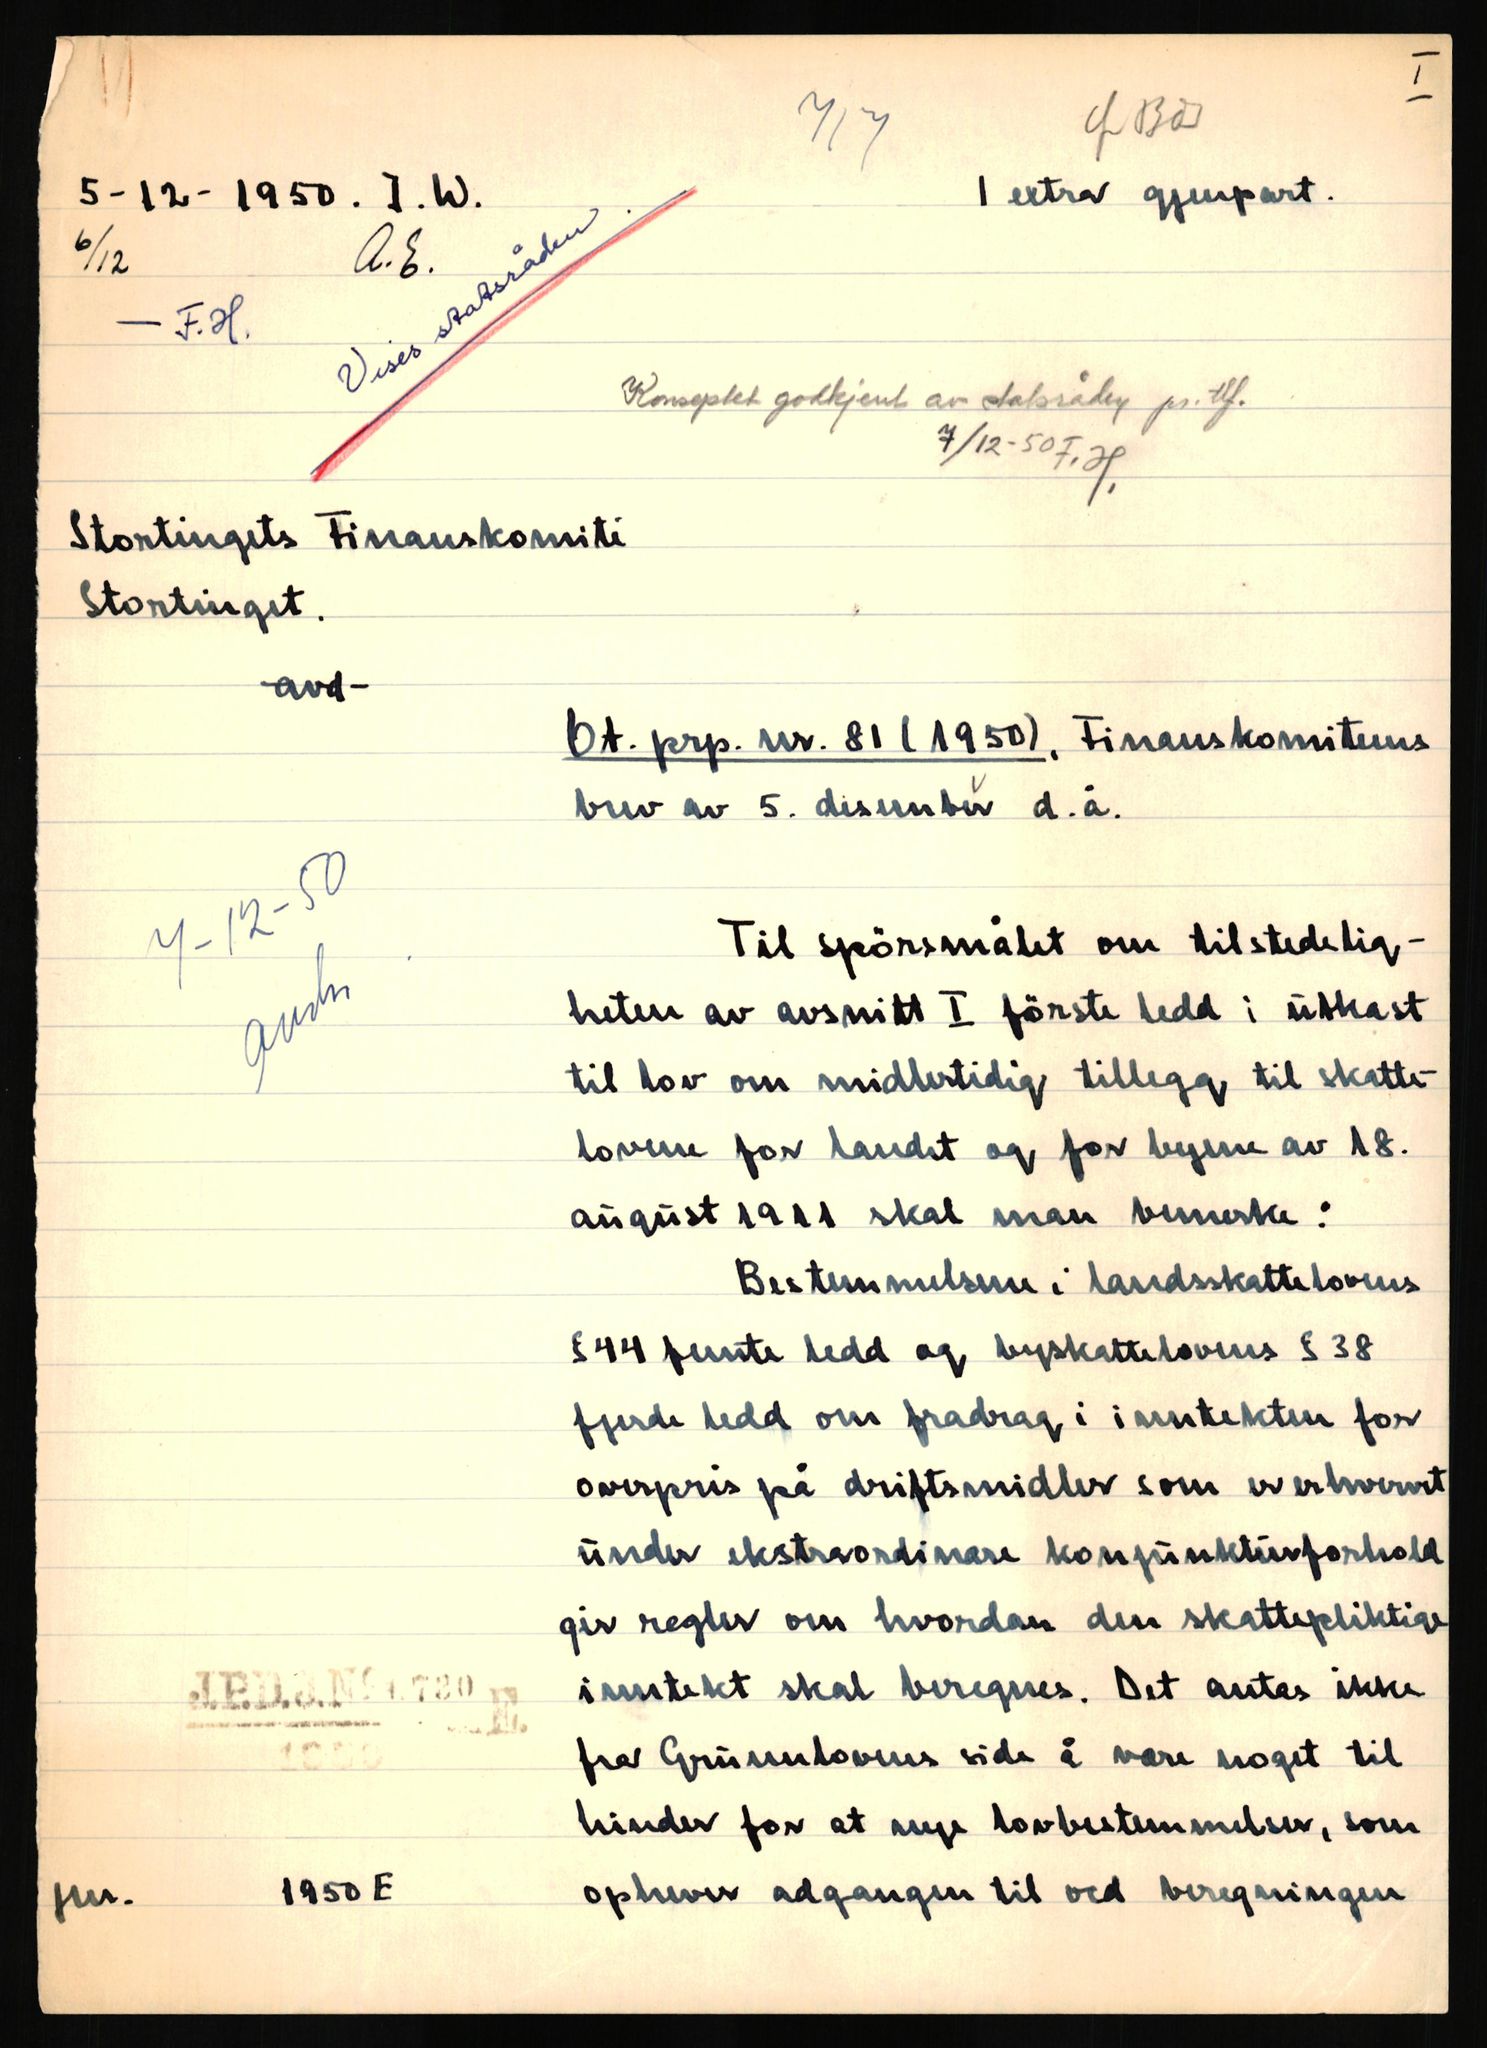 I
7/7
5-12-1950. I.W.
1 extra gjenpart.
6/12
A.E.
— F.H.
Vises statsråden
Konseptet godkjent av statsråden pr. tlf.
7/12-50 F.H.
Stortingets Finanskomité
Stortinget.
avd
Ot. prp. nr. 81 (1950), Finanskomiteens
brev av 5. desember d.å.
7-12-50
Til spörsmålet om tilstedelig-
heten av avsnitt I förste ledd i utkast
til lov om midlertidig tillegg til skatte-
lovene for landet og for byene av 18.
august 1911 skal man bemerke:
Bestemmelsene i landsskattelovens
§ 44 femte ledd og byskattelovens § 38
fjerde ledd om fradrag i inntekten for
overpris på driftsmidler som er erhvervet
under ekstraordinære konjunkturforhold
gir regler om hvordan den skattepliktige
inntekt skal beregnes. Det antas ikke
fra Grunnlovens side å være noget til
hinder for at nye lovbestemmelser, som
ophever adgangen til ved beregningen
jnr.
1950 E